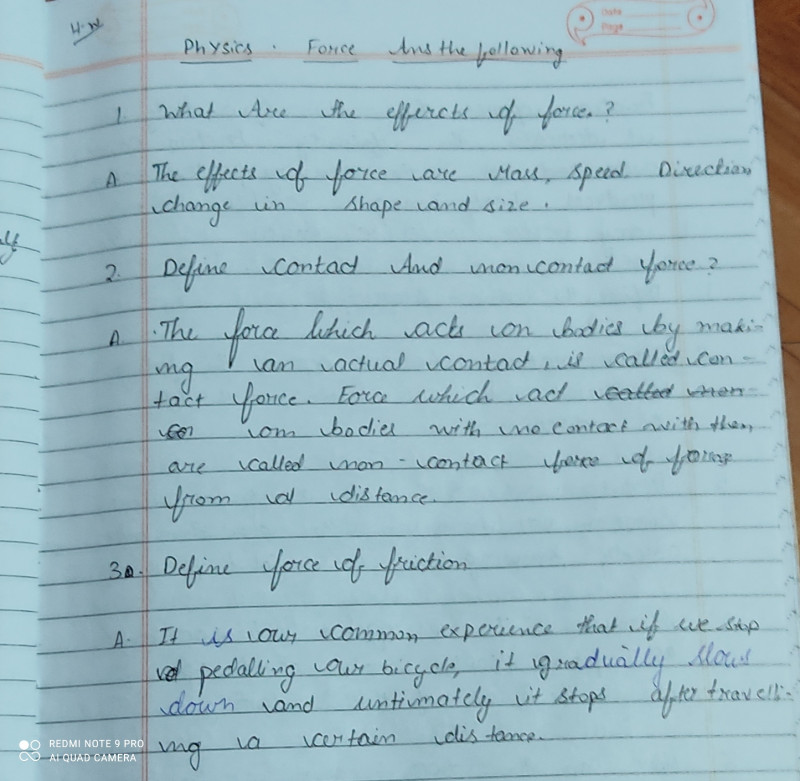 H.W
Date
Page
Physics . Force Ans the following
1 What Are the effercts of force. ?
A The effects of force are Mass, speed Direction
change in shape and size .
2. Define contact And non contact force ?
A .The force which acts on bodies by maki-
ng an actual contact, is called con-
tact force. Force which act called non-
on bodies with no contact with them,
are called non - contact force of
from a distance.
3 Define force of friction
A. It is our common experience that if we stop
pedalling our bicycle, it gradually slows
down and untimately it stops after travelli-
ng a certain distance.
REDMI NOTE 9 PRO
AI QUAD CAMERA